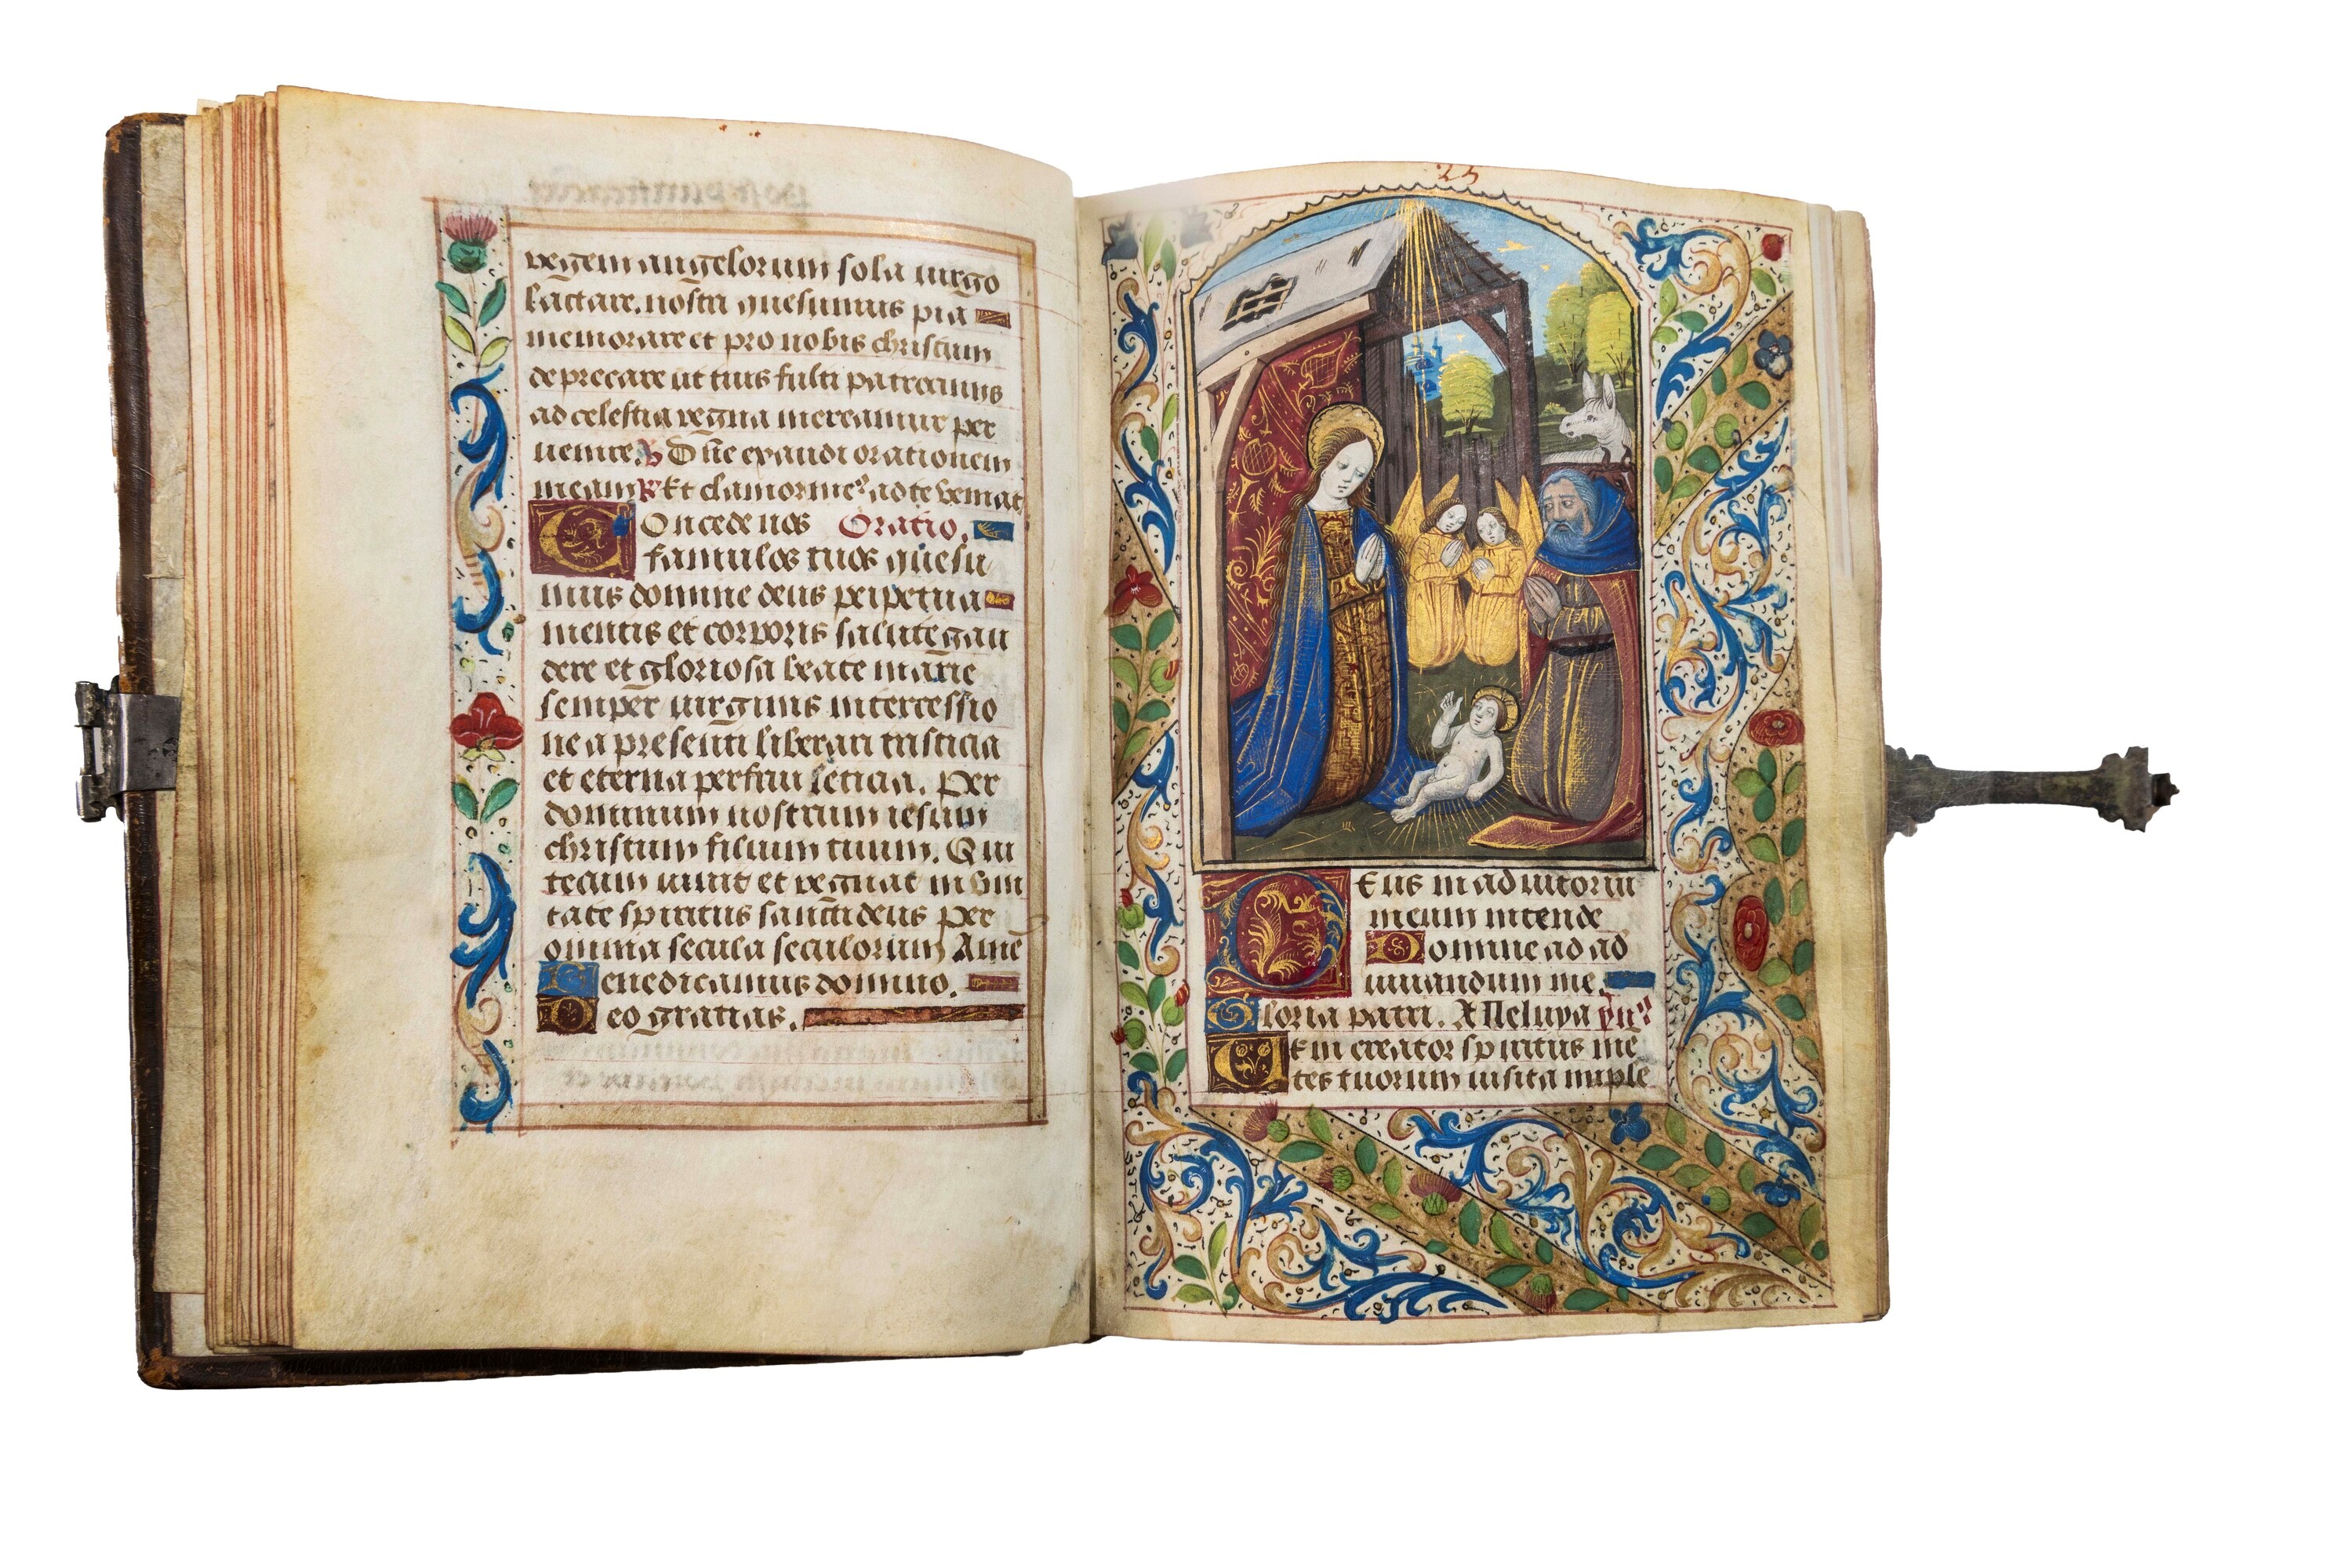 regem angelorum sola uirgo
lactare. nostri quesumus pia
memorare et pro nobis christum
deprecare ut tuis fulti patrociniis
ad celestia regna mereamur per
uenire. Dñe exaudi orationem
meam R Et clamor meꝰ ad te veniat
Concede nos Oratio.
famulos tuos quesu
mus domine deus perpetua
mentis et corporis salute gau
dere et gloriosa beate marie
semper uirginis intercessio
ne a presenti liberari tristicia
et eterna perfrui leticia. Per
dominum nostrum iesum
christum filium tuum. Qui
tecum uiuit et regnat in vni
tate spiritus sancti deus per
omnia secula seculorum Ame
Benedicamus domino.
Deo gratias.
25
Deus in adiutoriu
meum intende
Domine ad ad
iuuandum me.
Gloria patri. Alleluya
Veni creator spiritus me
tes tuorum uisita imple